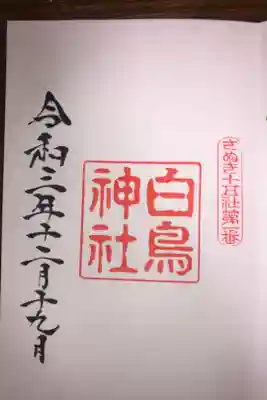 さぬき十五社第一番
白鳥
神社
令和二年十二月十九日